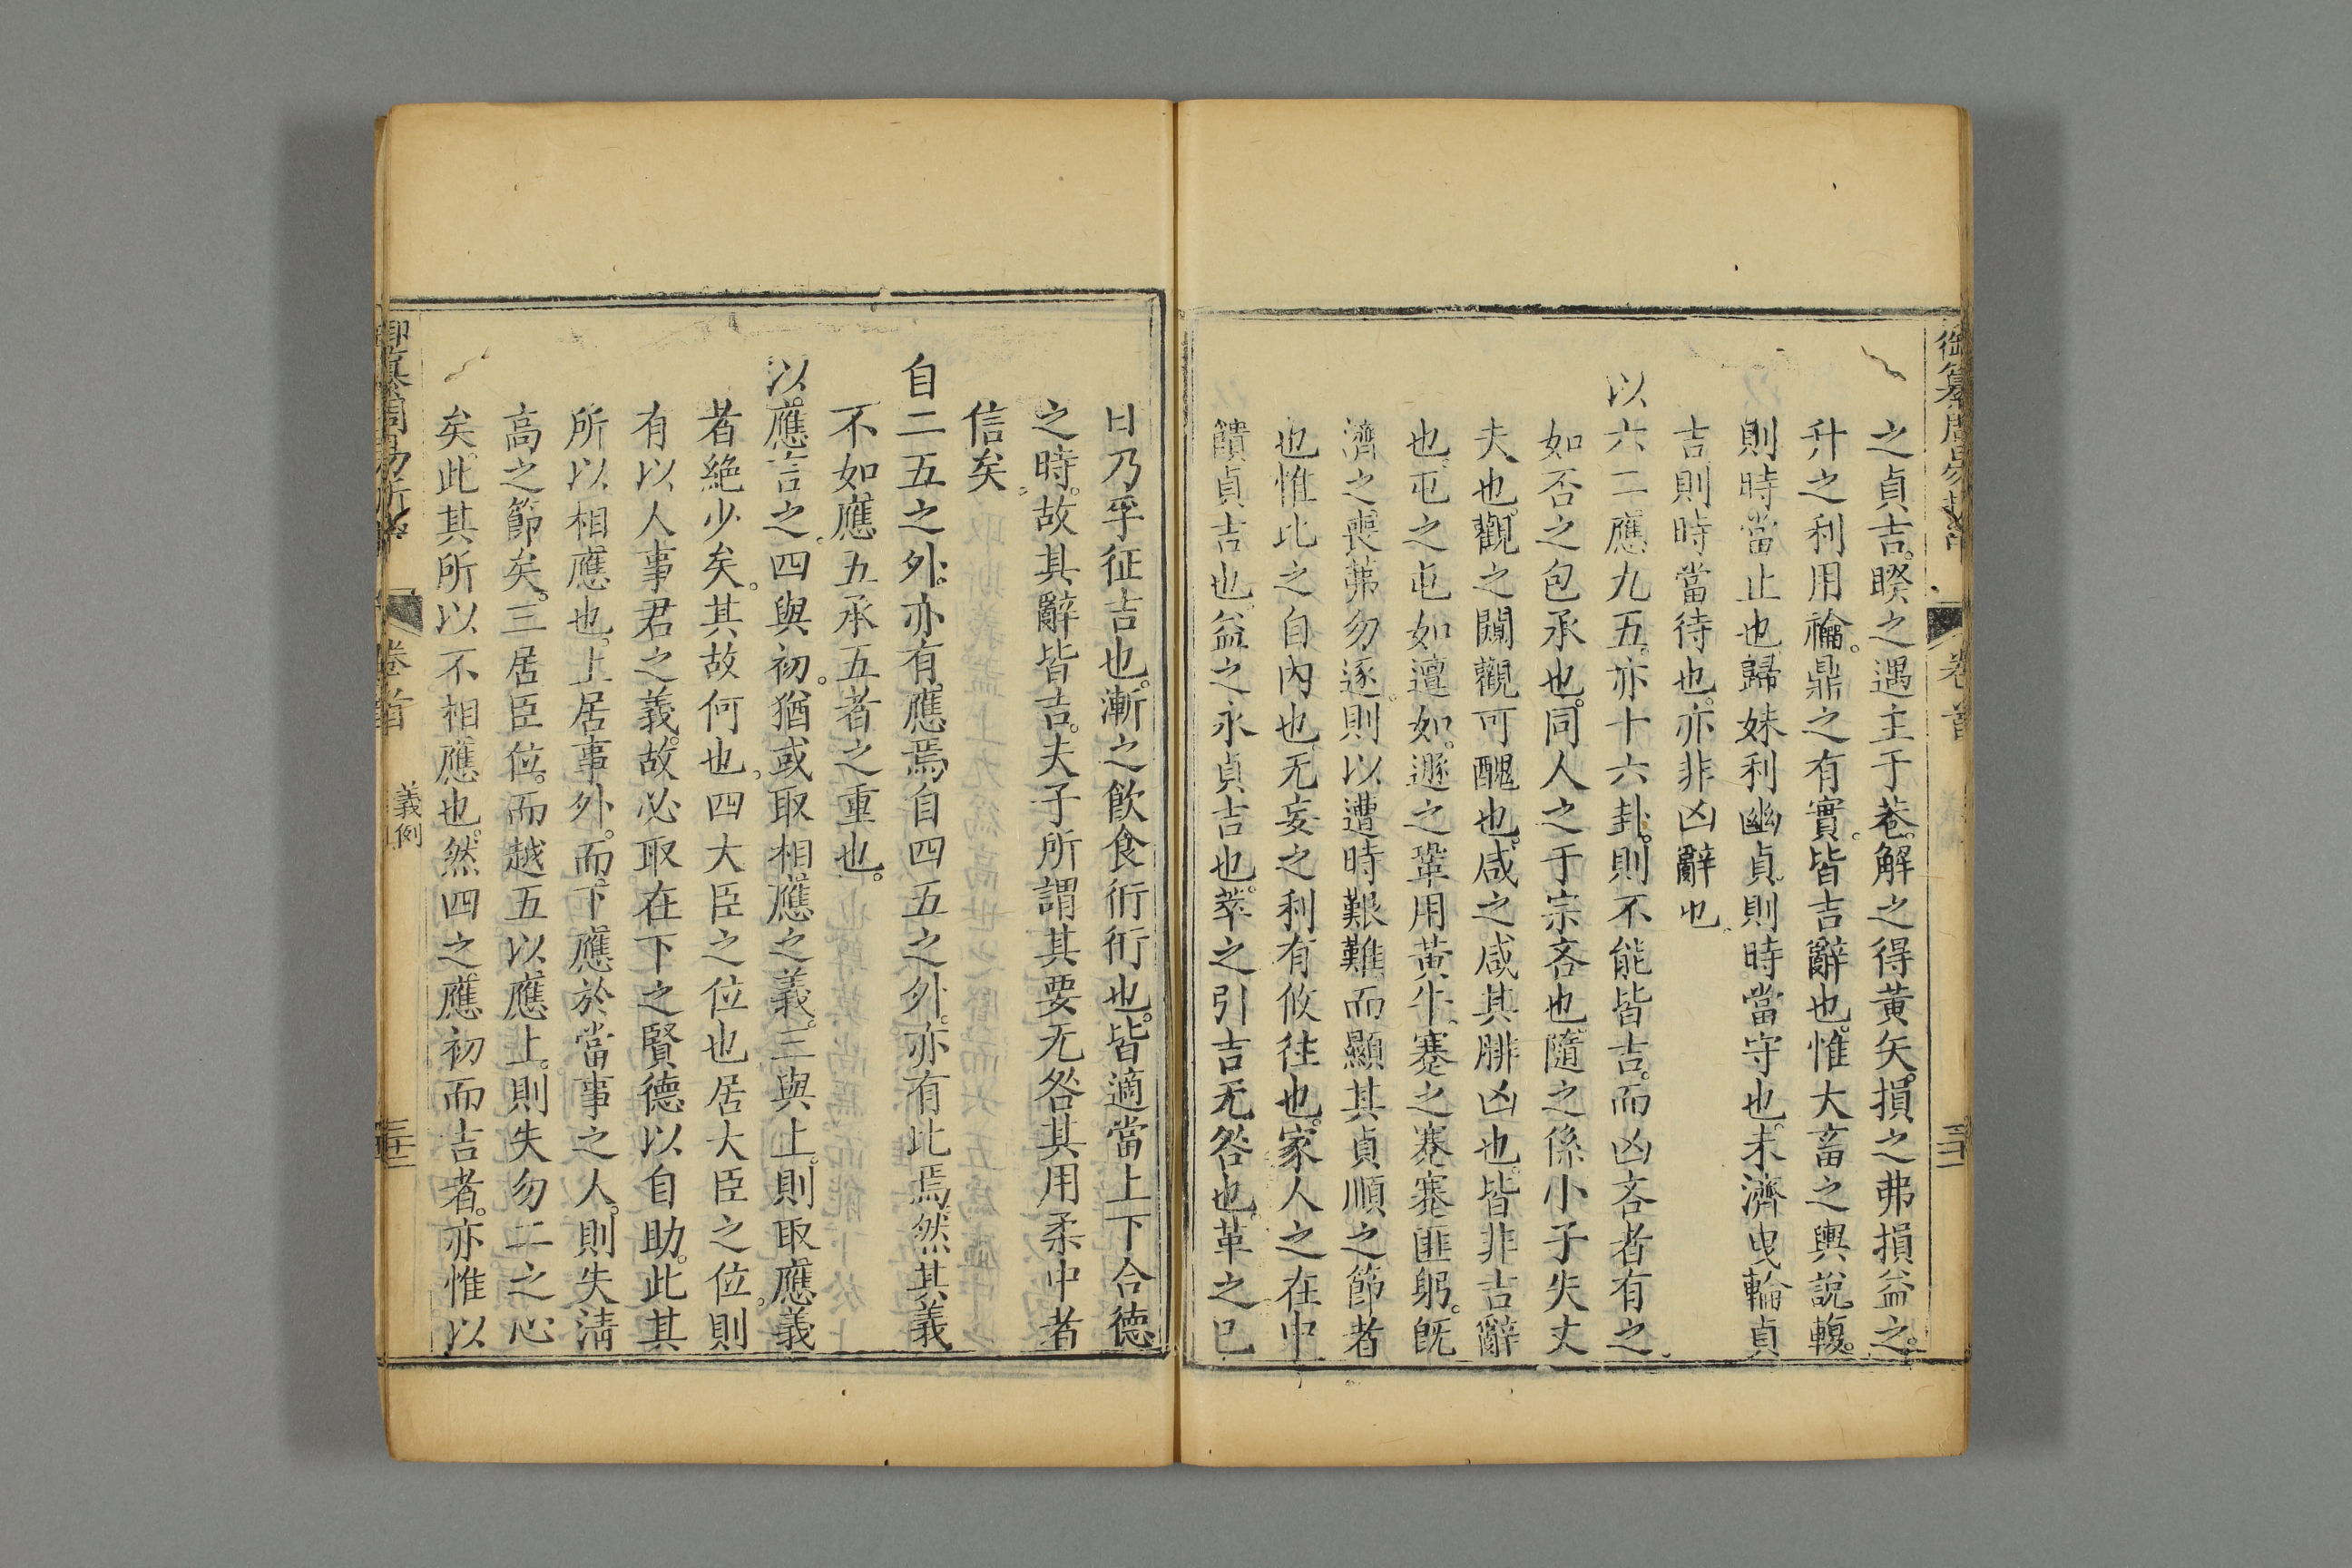 御纂周易折中
卷首
三十二
之貞吉。睽之遇主于巷。解之得黃矢。損之弗損益之。
升之利用禴。鼎之有實。皆吉辭也。惟大畜之輿說輹。
則時當止也。歸妹利幽貞。則時當守也。未濟曳輪貞
吉則時當待也。亦非凶辭也。
以六二應九五。亦十六卦。則不能皆吉。而凶吝者有之。
如否之包承也。同人之于宗吝也。隨之係小子失丈
夫也。觀之闚觀可醜也。咸之咸其腓凶也。皆非吉辭
也。屯之屯如邅如。遯之鞏用黃牛。蹇之蹇蹇匪躬。旣
濟之喪茀勿逐。則以遭時艱難。而顯其貞順之節者
也。惟比之自內也。无妄之利有攸往也。家人之在中
饋貞吉也。益之永貞吉也。萃之引吉无咎也。革之已
日乃孚征吉也。漸之飮食衎衎也。皆適當上下合德
之時。故其辭皆吉。夫子所謂其要无咎其用柔中者
信矣。
自二五之外。亦有應焉。自四五之外。亦有比焉。然其義
不如應五承五者之重也。
以應言之。四與初。猶或取相應之義。三與上。則取應義
者絶少矣。其故何也。四大臣之位也。居大臣之位。則
有以人事君之義。故必取在下之賢德以自助。此其
所以相應也。上居事外。而下應於當事之人。則失淸
高之節矣。三居臣位。而越五以應上。則失勿二之心
矣。此其所以不相應也。然四之應初而吉者。亦惟以
御纂周易折中
卷首
義例
三十二